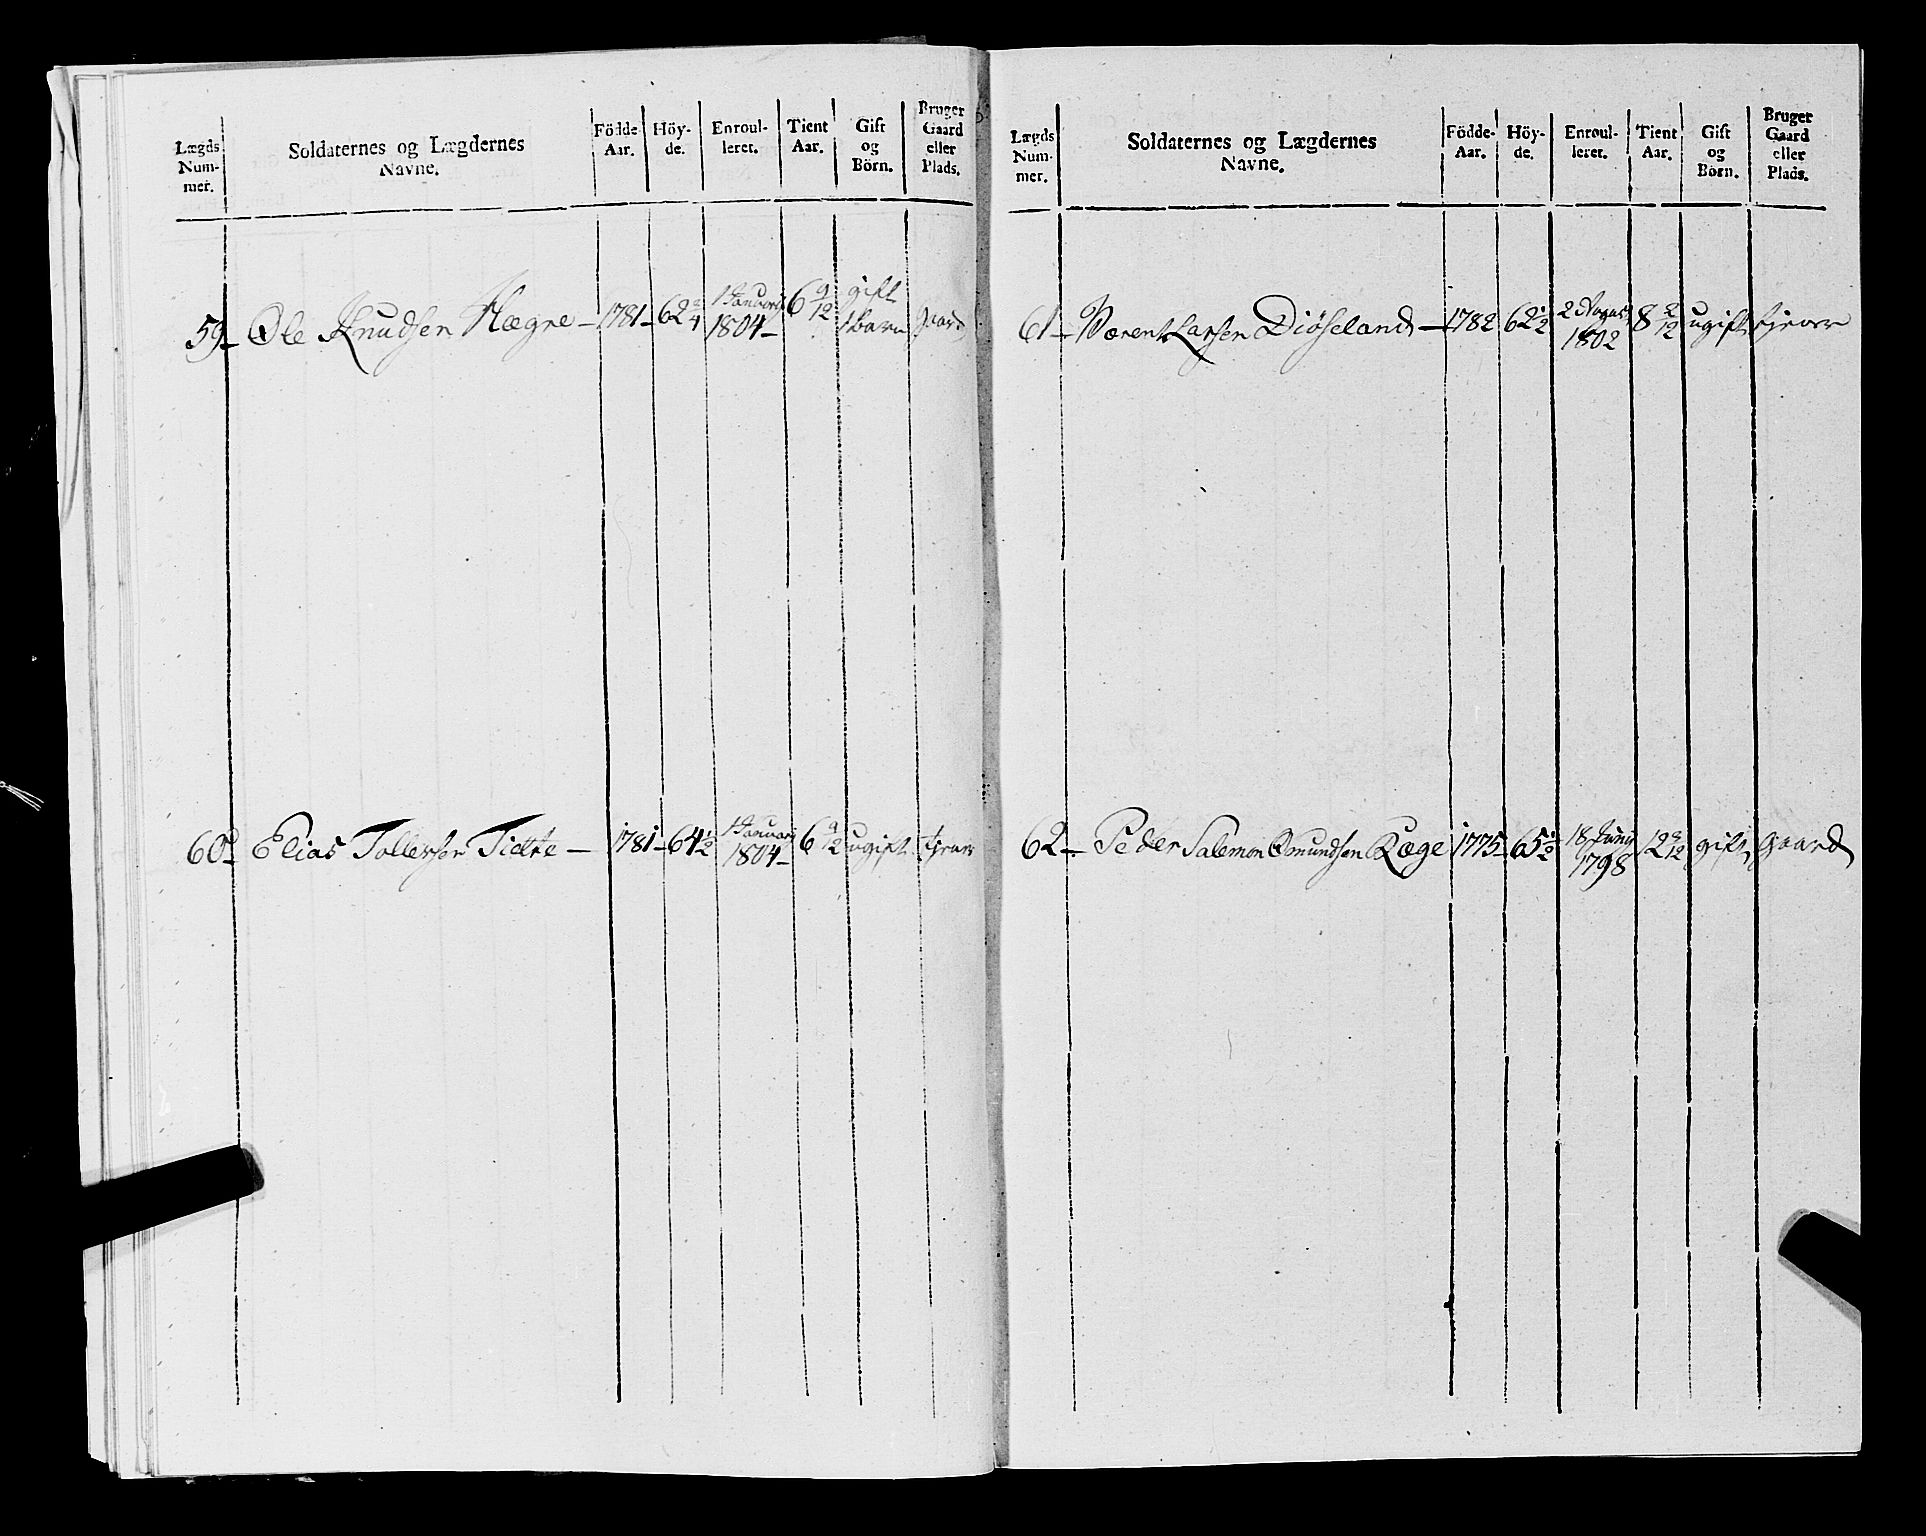 Lægds Num- mer. Soldaternes og Lægdernes Navne. Födde Aar. Höy- de. Enroul- leret. Tient Aar. Gift og Börn. Bruger Gaard eller Plads.
59 Ole Knudsen Hægre 1781 62 3/4 1 January 1804 6 9/12 gift 1 barn gaard
60 Elias Tollefsen Tiette 1781 64 1/2 1 January 1804 6 9/12 ugift tjener
Lægds Num- mer. Soldaternes og Lægdernes Navne. Födde- Aar. Höy- de. Enroul- leret. Tient Aar. Gift og Börn. Bruger Gaard eller Plads.
61 Bærent Larsen Diöseland 1782 62 1/2 2 August 1802 8 2/12 ugift tjener
62 Peder Salemon Omundsen Ræge 1775 65 1/2 18 Juny 1798 12 3/12 gift gaard